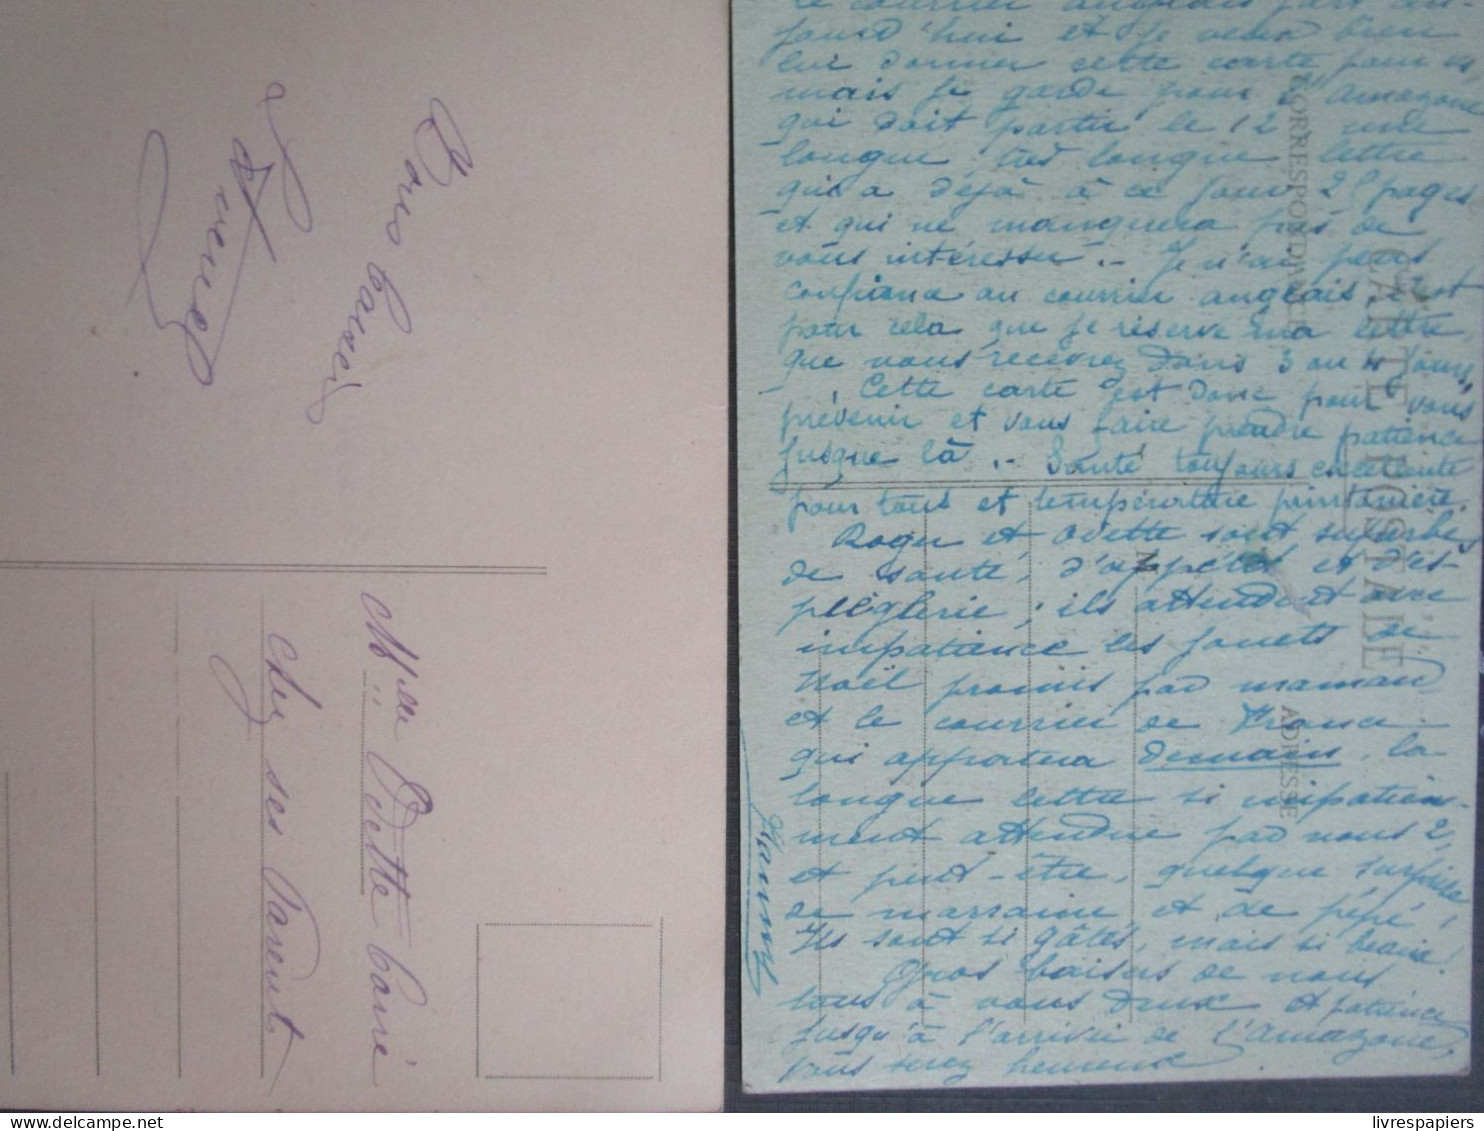 Bons baisers
à
Melle Odette
chez ses Parents
le courrier anglais part au-
jourd'hui et je veux bien
lui donner cette carte pour vs
mais je garde pour l'"Amazone
qui doit partir le 12 une
longue, très longue lettre
qui a déjà à ce jour 2 pages
et qui ne manquera pas de
vous intéresser.- Je n'ai pas
confiance au courrier anglais, c'est
pour cela que je réserve ma lettre
que vous recevrez dans 3 ou 4 jours,
Cette carte est donc pour vous
prévenir et vous faire prendre patience
jusque là.- Santé toujours excellente
pour tous et température printanière.
Roger et Odette sont superbes
de santé, d'appétit et d'es-
pièglerie; ils attendent avec
impatience les jouets de
Noël promis par maman
et le courrier de France
qui apportera demain, la
longue lettre si impatiem-
ment attendue par nous 2,
et peut-être, quelque surprise
de marraine et de pépé!
Ils sont si gâtés, mais si
Gros baisers de nous
tous à vous deux et patience
jusqu'à l'arrivée de l'Amazone,
vous serez heureux
CARTE POSTALE
CORRESPONDANCE
ADRESSE
livrespapiers